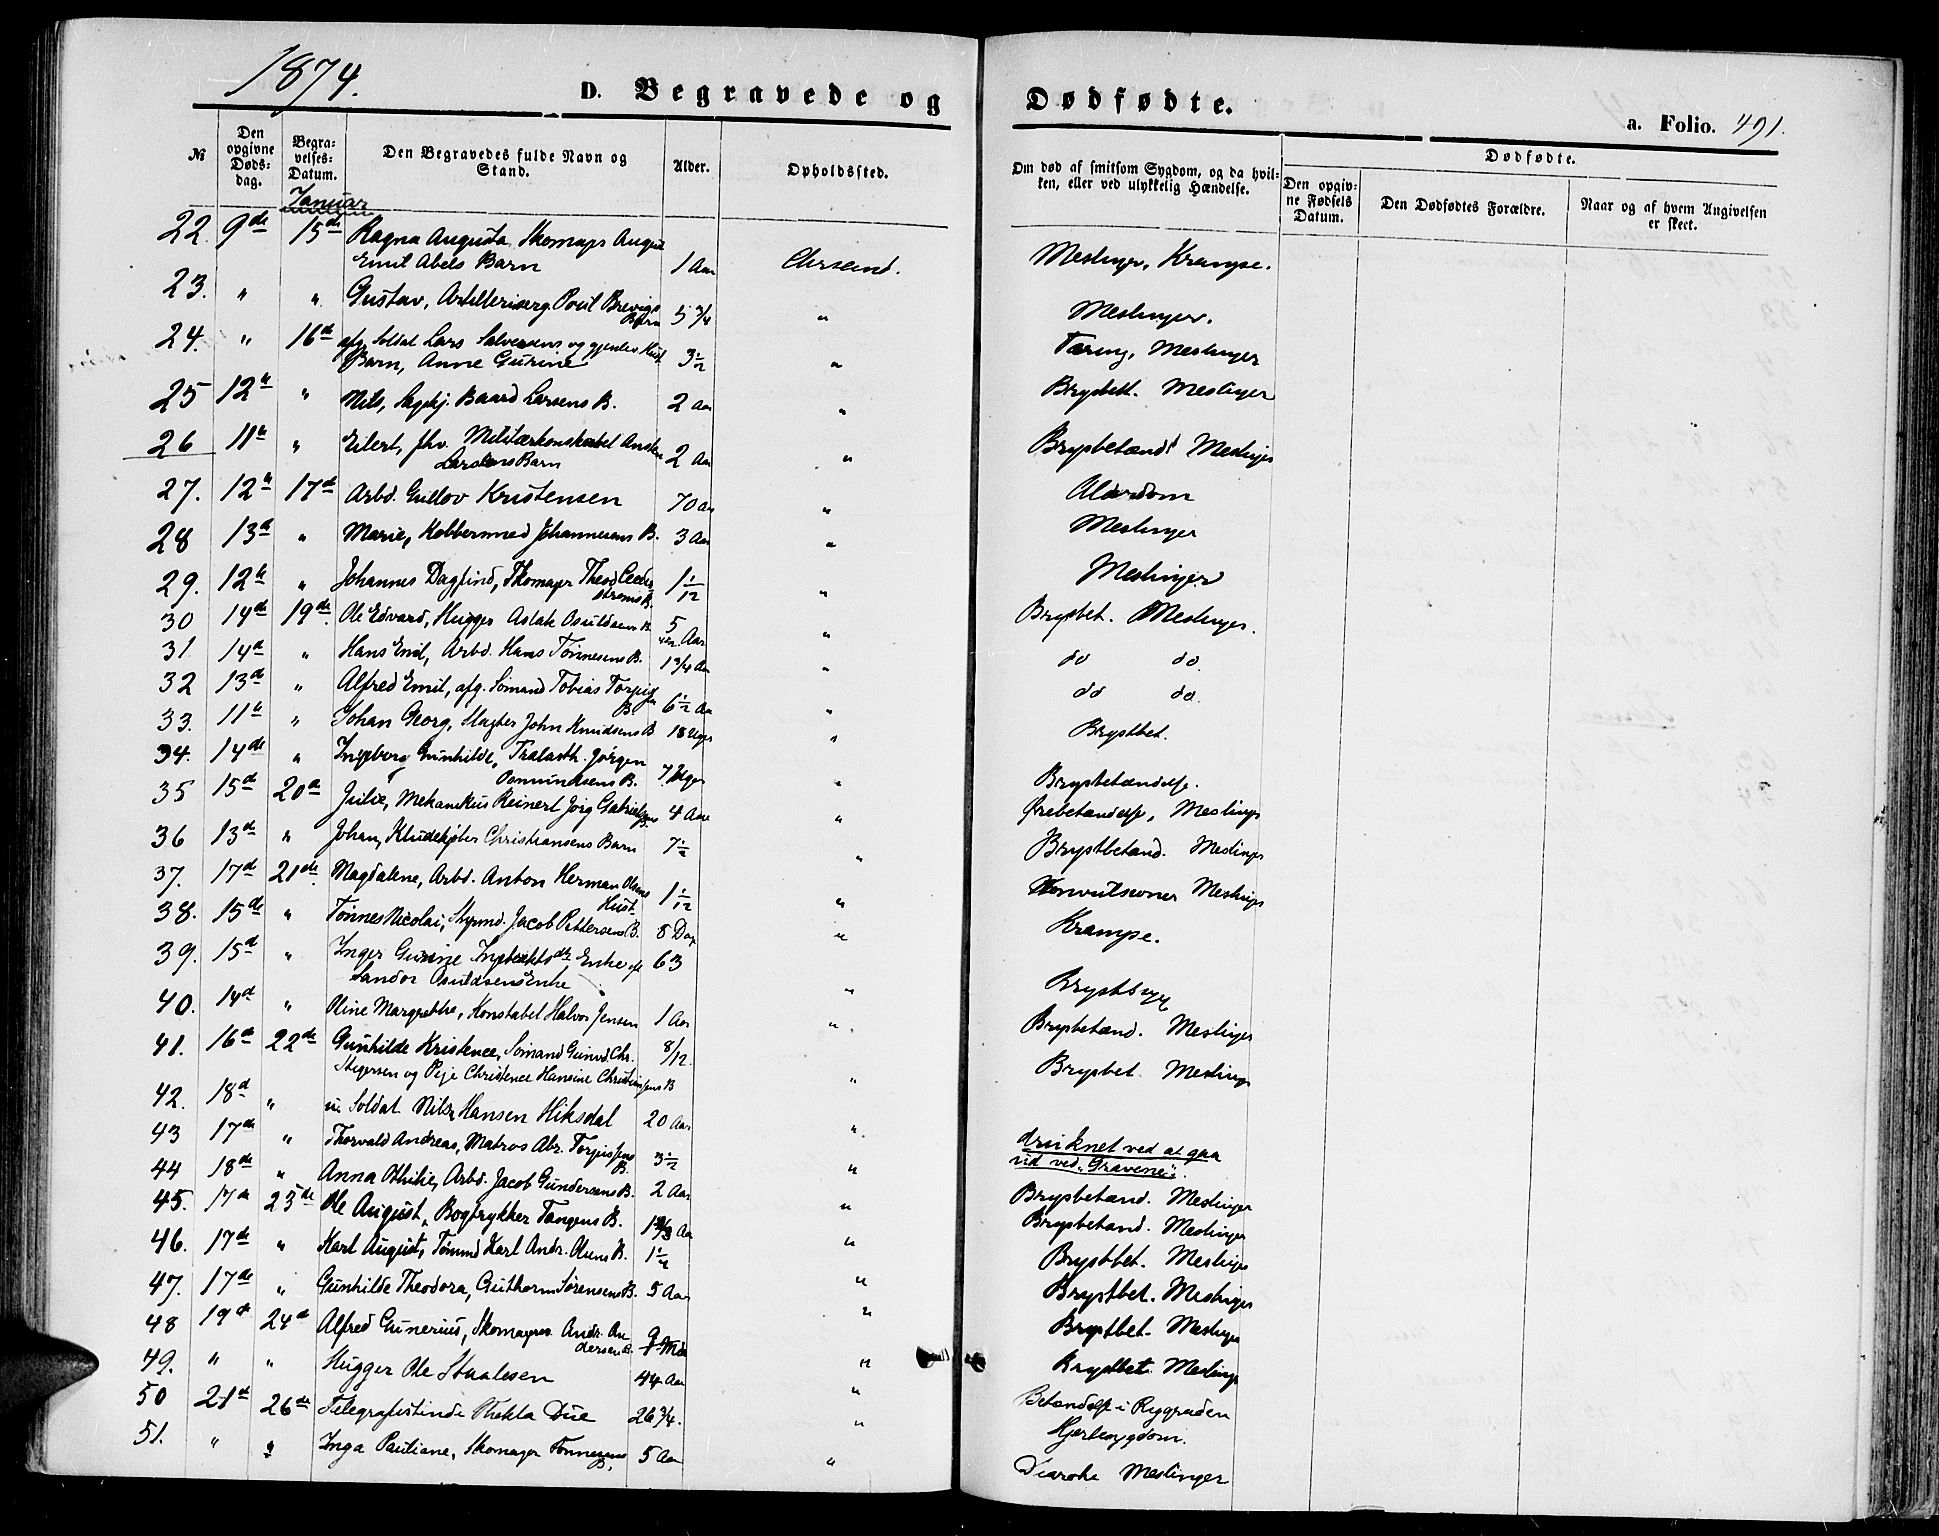 1874.
D. Begravede og Dødfødte.
a. Folio. 491.
№
Den opgivne Døds-dag.
Begra-velses-Datum.
Den Begravedes fulde Navn og Stand.
Alder.
Opholdssted.
Om død af smitsom Sygdom, og da hvil-ken, eller ved ulykkelig Hændelse.
Dødfødte.
Den opgiv-ne Fødsels Datum.
Den Dødfødtes Forældre.
Naar og af hvem Angivelsen er skeet.
Januar
22. 9de 15de Ragna Augusta Skomagr August
Emil Abels Barn 1 Aar Chrsand. Meslinger, Krampe.
23. " " Gustav, Artilleriserg. Poul Brevigs
Barn 5 3/4 " Meslinger.
24. " 16de afg. Soldat Lars Salvesens og gjenlev. Hust.
Barn, Anne Gurine 3 1/2 " Tæring, Meslinger
25 12te " Nils, Baard Larsens B. 2 Aar " Brystbet. Meslinger
26 11te " Eilert, fhv. Militærkonstabel
Larsens Barn 2 Aar " Brystbetænd. Meslinger
27. 12te 17de Arbd. Gullov Kristensen 70 Aar " Alderdom
28 13de " Marie, Kobbersmed Johannesens B. 3 Aar " Meslinger
29. 12te " Johannes Dagfind, Skomager Theod. Ceder
strøms B. 1 1/12 " Meslinger
30 14de 19de Ole Edvard, Hugger Aslak Osuldsens B. 5 Aar " Brystbet. Meslinger.
31 14de " Hans Emil, Arbd. Hans Tønnesens B. 1 3/4 Aar " do do.
32 13de " Alfred Emil, afg. Sømand Tobias
B. 6 1/2 Aar " do do.
33. 11te " Johan Georg, Slagter John Knudsens B 18 Uger " Brystbet.
34. 14de " Ingeborg Gunhilde, Jørgen
Osmundsens B. 7 Uger " Brystbetændelse.
35 15de 20de Julie, Mekanikus Reinert Jørg Gabrielsens
B. 4 Aar " Ørebetændelse, Meslinger
36 13de " Johan, Kludekjøber Christiansens Barn 7 1/2 " Brystbetænd. Meslinger
37. 17de 21de Magdalene, Arbd. Anton Herman Olsens
Hust. 1 1/12 " Konvulsioner Meslinger
38. 15de " Tønnes Nicolai, Styrmd. Jacob Pettersens B. 8 Dage " Krampe.
39. 15de " Inger Gurine Enke
Sandor Osuldsens Enke 63 " Brystsyge
40. 14de " Oline Margrethe, Konstabel Halvor Jensen 1 Aar " Brystbetænd. Meslinger
41. 16de 22de Gunhilde Kristence, Sømand Gunvd. Chr.
og Pige Christence Hansine Christensens B 8/12. " Brystbet. Meslinger
42. 18de " Soldat Nils Hansen Hiksdal 20 Aar " druknet ved at gaa
ud ved "Gravene".
43 17de " Thorvald Andreas, Matros Abr. Torjussens
B. 3 1/2 " Brystbetænd. Meslinger
44 18de " Anna Othilie, Arbd. Jacob Gundersens B. 2 Aar " Brystbetænd. Meslinger
45. 17de 23de Ole August, Bogtrykker Tangens B. 1 Aar " Brystbet. Meslinger
46. 17de " Karl August, Tømmd Karl Andr. Olsens B. 1 1/2 " Brystbet. Meslinger
47. 17de " Gunhilde Theodora, Guthorm Sørensens B. 5 Aar " Brystbet. Meslinger
48 19de 24de Alfred Gunerius, Skomager Andr. An
dersens B. 9 " Brystbet. Meslinger
49. " " Hugger Ole Staalesen 44 Aar " Betændelse i Rygraden
50 21de 26de Telegrafistinde Thekla Due 26 3/4. " Hjertesygdom.
51. " " Inga Pauliane, Skomager Tønnesens
B. 5 Aar " Diarohe Meslinger